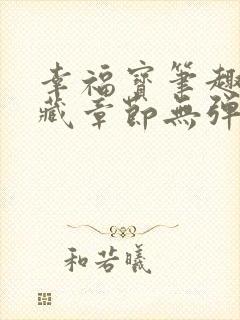 幸福寶筆趣
藏章節無彈
和若曦